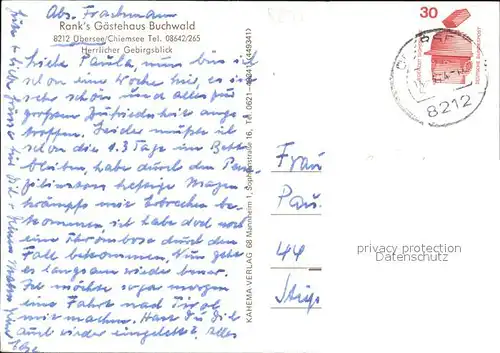 Abs. Frachmann
Rank's Gästehaus Buchwald
8212 Übersee/Chiemsee Tel. 08642/265
Herrlicher Gebirgsblick
Liebe Paula, nun bin ich
schon eine Woche hier, es ist
sehr schön und alles zur
großen Zufriedenheit ange
troffen. Leider mußte ich
schon die 1. 3 Tage im Bett
bleiben, habe durch den Pen-
izilinn heftige Magen
krämpfe mit Erbrechen be-
kommen, ich habe doch noch
eine Thrombose durch den
Fall bekommen. Nun geht
es langsam wieder besser.
Ich möchte sogar morgen
eine Fahrt nach Tirol
mitmachen. Hast Du Dich
auch wieder eingelebt? Alles
KAHEMA-VERLAG 68 Mannheim 1, Sophienstraße 16, Tel. 0621-40241 (449341)
30
DEUTSCHE BUNDESPOST
8212
Frau
Pau
44
privacy protection
Datenschutz